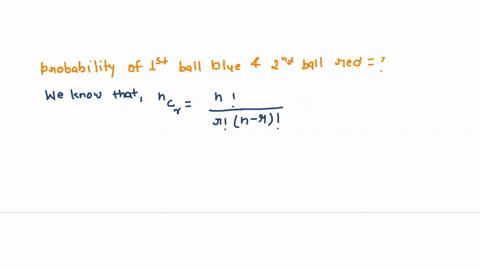 probability of 1st ball blue & 2nd ball red = ?
We know that, nCr = n! / r! (n-r)!